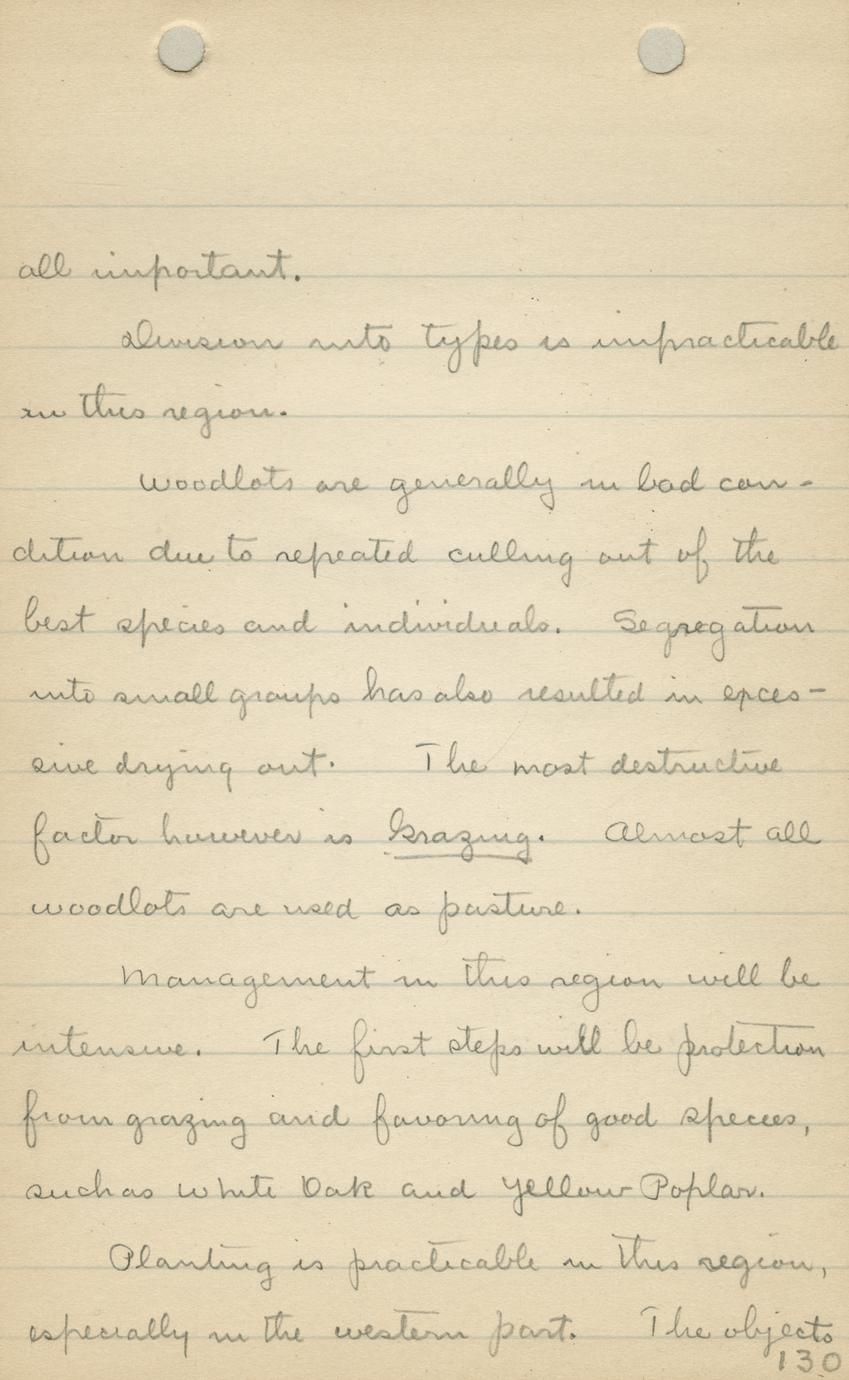 all important.
Division into types is impracticable
in this region.
Woodlots are generally in bad con-
dition due to repeated culling out of the
best species and individuals. Segregation
into small groups has also resulted in exces-
sive drying out. The most destructive
factor however is Grazing. Almost all
woodlots are used as pasture.
Management in this region will be
intensive. The first steps will be protection
from grazing and favoring of good species,
such as White Oak and Yellow Poplar.
Planting is practicable in this region,
especially in the western part. The objects
130